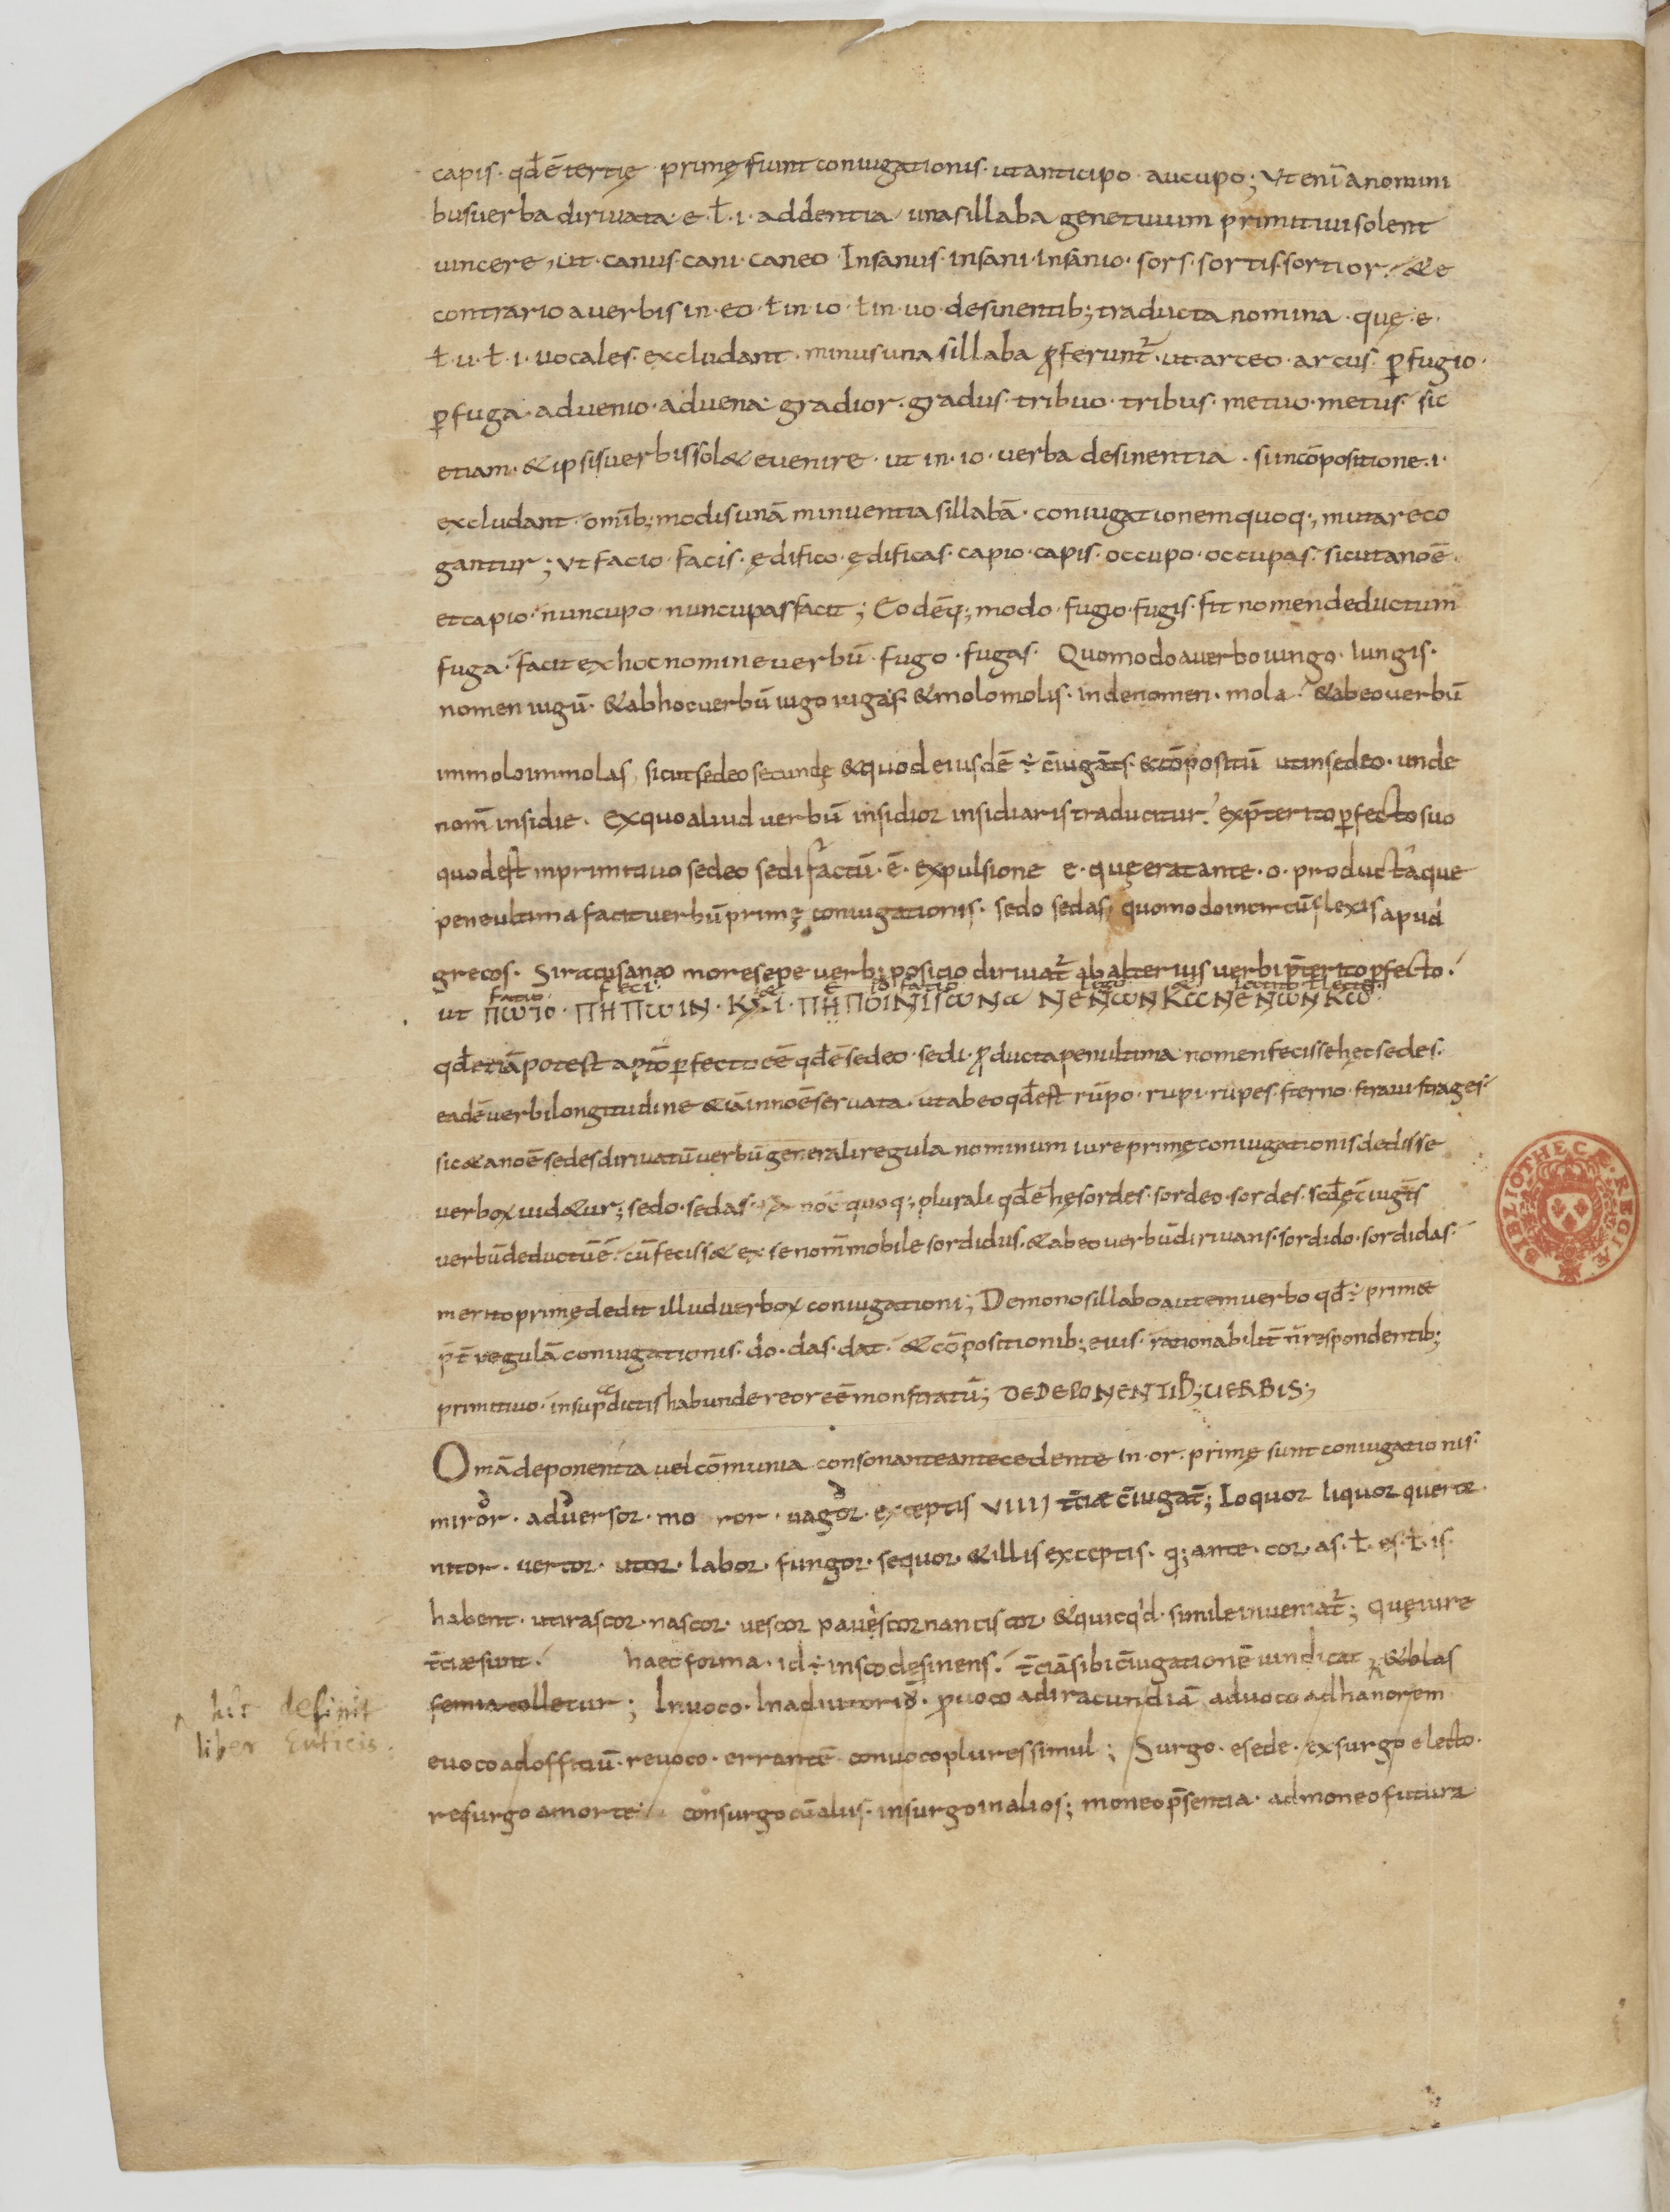 capis · qđ ē tertię · primę fiunt coniugationis · ut anticipo · aucupo ; Ut eni̅ a nomini
bus uerba diriuata · e · ł · i · addentia · una sillaba genetiuum primitiui solent
uincere , ut · canus · cani · caneo · Insanus · insani · insanio · sors · sortis · sortior · & e
contrario a uerbis in · eo · ł in · io · ł in · uo · desinentib; traducta nomina · quę · e ·
ł · u · ł · i · uocales · excludant · minus una sillaba ꝓferunt̃ · ut arceo · arcus · ꝑfugio ·
ꝑfuga · aduenio · aduena · gradior · gradus · tribuo · tribus · metuo · metus · sic
etiam · & ipsis uerbis sol& euenire · ut in · io · uerba desinentia · si in cōpositione · i ·
excludant · omīb; modis unā minuentia sillabā · coniugationem quoq·; mutare co
gantur ; Ut facio · facis · ędifico · ędificas · capio · capis · occupo · occupas · sicut a noē
et capio · nuncupo · nuncupas facit ; Eodēq; modo · fugio · fugis · fit nomen deductum
fuga · facit ex hoc nomine uerbū · fugo · fugas · Quomodo a uerbo iungo · iungis ·
nomen iugū · & ab hoc uerbū iugo iugas · & molo molis · inde nomen · mola · & ab eo uerbū
immolo immolas , sicut sedeo secundę & quod eiusdē ÷ c̄iugāt̄s · & cōpositū ut insedeo · unde
nom̄ insidie · Ex quo aliud uerbū insidior insidiaris traducitur · ex p̄terito ꝑfecto suo
quod est in primitiuo sedeo sedi factū · ē · expulsione e · quę erat ante · o · producta que
peneultima facit uerbū primę coniugationis · sedo sedas , quomodo in circūflexis apud
grecos · Siracusano more sepe uerbi posicio diriuat̃ ab alterius uerbi p̄terito ꝑfecto ·
facio · feci · & e io facio lego & iacto ł lecto
ut ΠωΙο · ΠΗΠωΙΝ · ΚΧΙ · ΠΗΠΟΙΝΙΓωΝω ΝΕΝωΝΚΕΕΝΕΝωΝΚω
qđ etiā potest a p̄tō ꝑfecto eē qđ ē sedeo · sedi · ꝓducta penultima nomen fecisse hęc sedes ·
eadē uerbi longitudine & iā in noē seruata · ut ab eo qđ est rūpo · rupi · rupes · sterno · straui · strages ·
sic & a noē sedes diriuatū uerbū generali regula nominum iure primę coniugationis dedisse
uerbox uid&ur ; sedo · sedas · noē quoq·; plurali qđ ē hę sordes · sordeo · sordes · scđę c̄iugt̄s
uerbū deductū ē · cū feciss& ex se nom̄ mobile sordidus · & ab eo uerbū diriuans · sordido · sordidas ·
merito primę dedit illud uerbox coniugationi ; De monosillabo autem uerbo qđ ÷ primæ
p̄t̄ regulā coniugationis · do · das · dat · & cōpositionib; eius · rationabilit̄ n̄ respondentib;
primitiuo · in supradictis habunde reor eē monstratū ; DE DEPONENTIB; UERBIS ;
Omā deponentia uel cōmunia consonante antecedente in · or · primę sunt coniugationis ·
miror · aduersor · mo ror · uagor · exceptis VIIII t̄ciæ c̄iugat̄ ; Loquor liquor queror
nitor · uertor · utor · labor · fungor · sequor · & illis exceptis · q; ante · cor · as · ł · es · ł · is
habent · ut irascor · nascor · uescor pauescor nanciscor · & quicqd · simile inueniat̃ ; Quę iure
t̄ciæ sunt · haec forma · id ÷ in sco desinens · t̄ciā sibi c̄iugationē uindicat & blas
femia colletur ; Inuoco · In adiutoriū · ꝓuoco ad iracundiā aduoco ad hanorem
euoco ad offitiū · reuoco · errantē conuoco plures simul ; Surgo · e sede · exsurgo e lecto ·
resurgo a morte · consurgo cū alius · insurgo in alios ; moneo p̄sentia · admoneo futura
hic definit
liber Euticis
BIBLIOTHECÆ REGIÆ